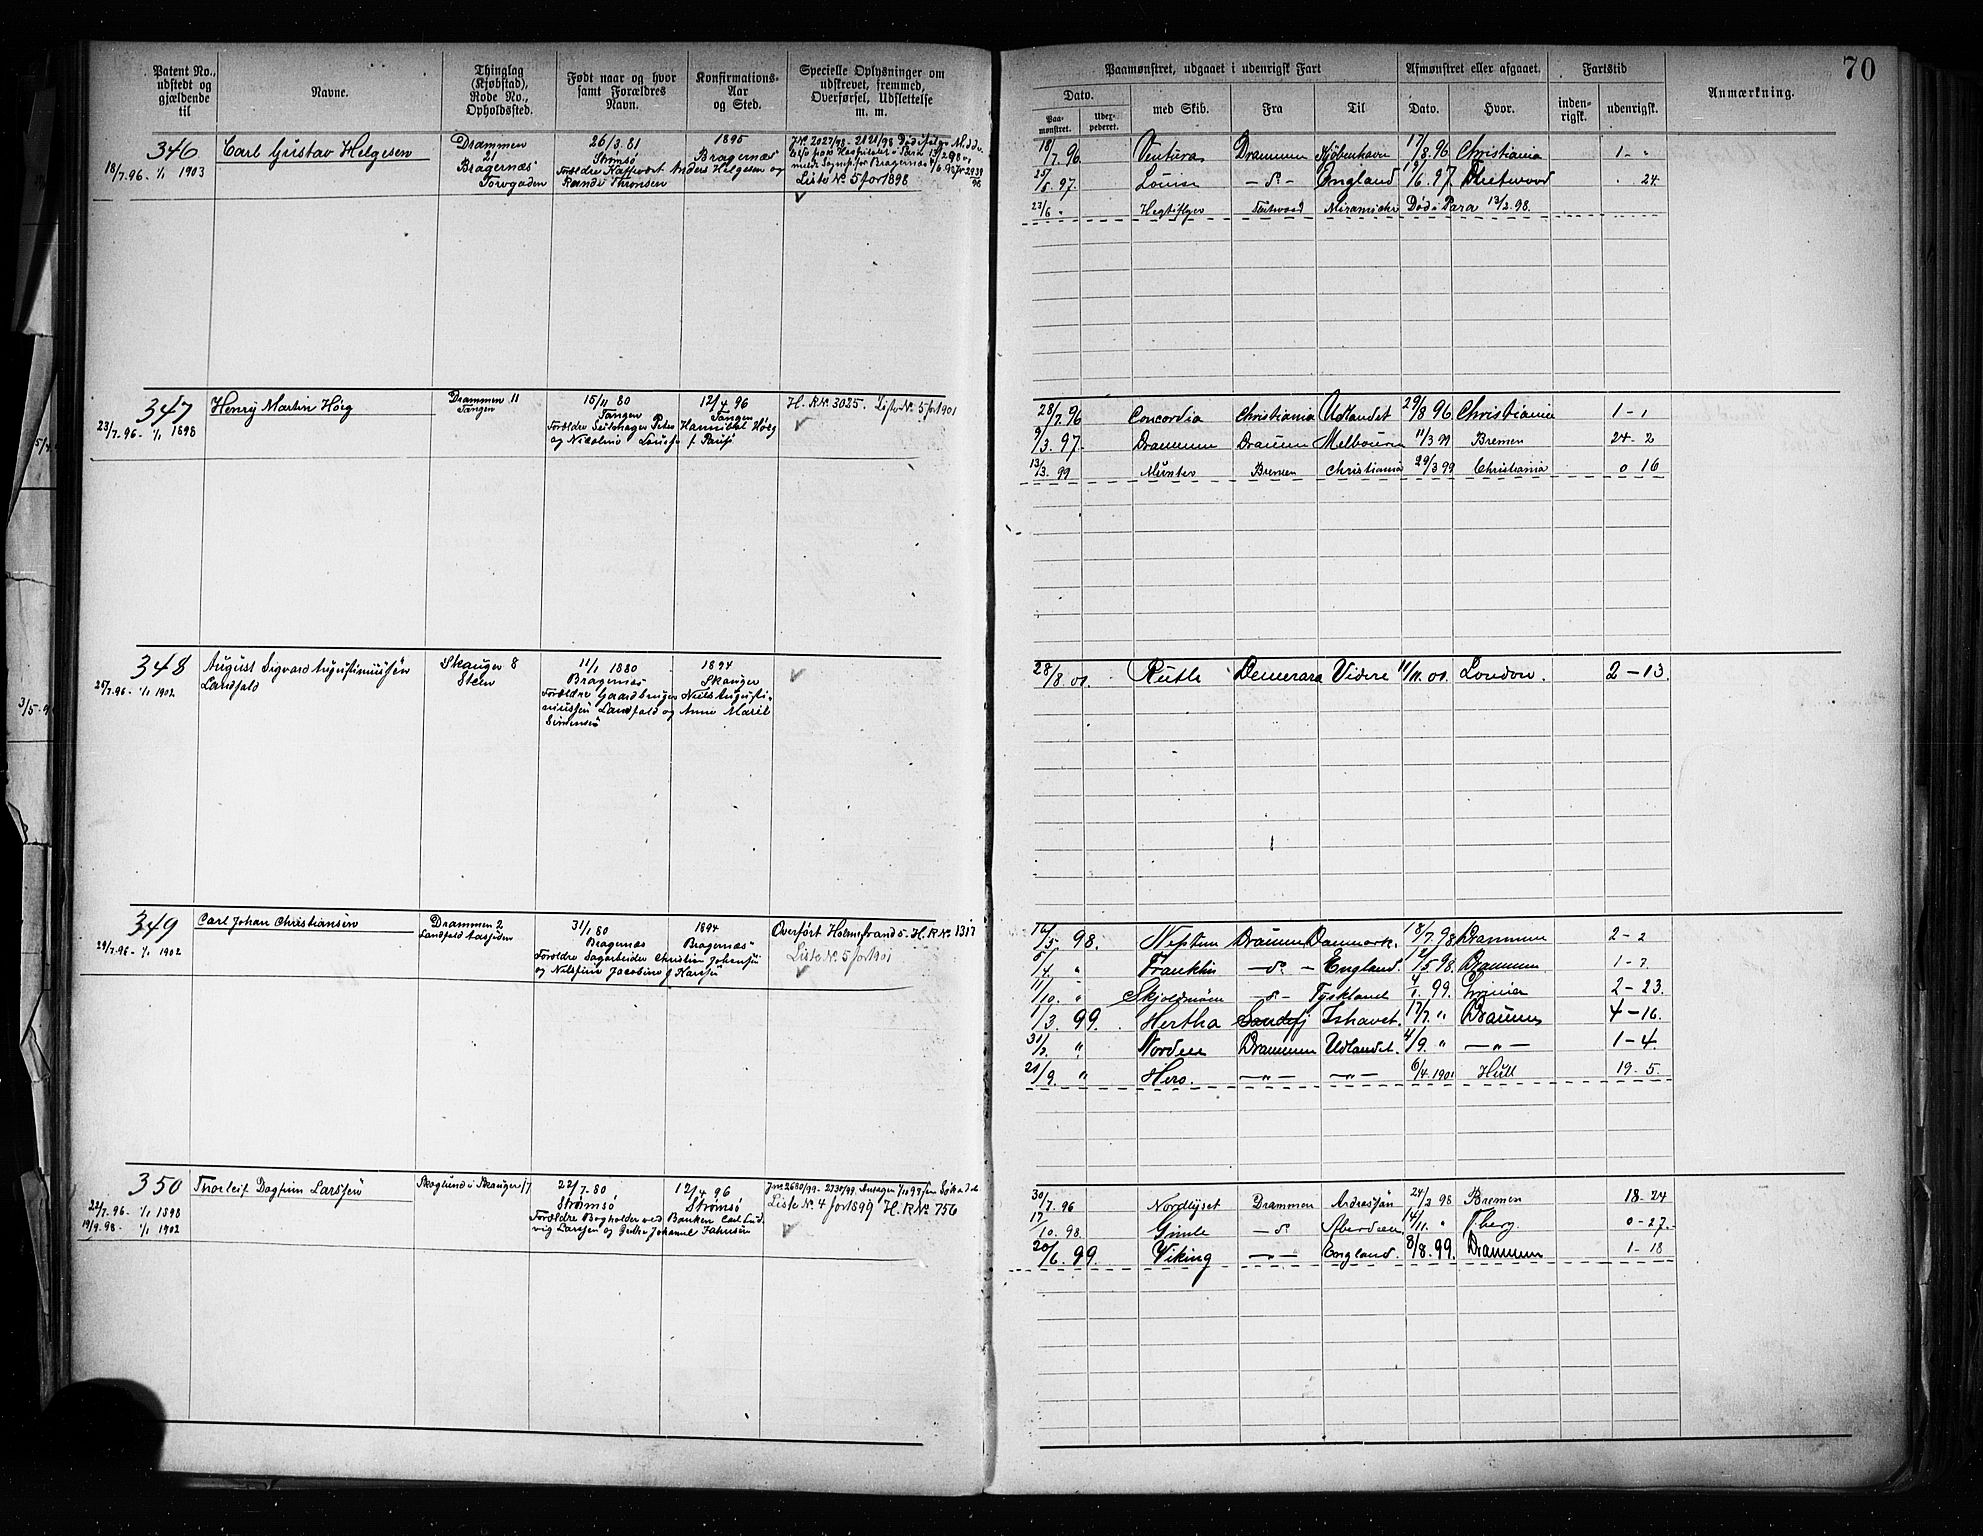 Patent No., udstedt og gjældende til
Navne.
Thinglag (Kjøbstad), Rode No., Opholdssted.
Født naar og hvor samt Forældres Navn.
Konfirmations- Aar og Sted.
Specielle Oplysninger om udskrevet, fremmed, Overførsel, Udslettelse m. m.
346
18/7.96. - 1/1 1903
Carl Gustav Helgesen
Drammen
21
Bragernæs
Torvgaden
26/3.81
Strømsø
Forældre Kaffevært Anders Helgesen og
Randi Thronsen
1895
Bragernæs
Liste No. 5 for 1898
347
23/7.96. - 1/1 1898
Henry Martin Høeg
Drammen 11
Tangen
15/11 80
Tangen
12/4 96
Tangen
H. R No. 3025. Liste No. 5 for 1901
348
25/7.96. - 1/1 1902.
August Sigvard Augustiniussen
Landfald
Skauger 8
Steen
11/1 1880
Bragernæs
Forældre Gaardbruger Niels Augusti-
niussen Landfald og Anne Marie
Simensen
1894
Skauger
349
29/7.96. - 1/1 1902
Carl Johan Christiansen
Drammen 2
31/1 80
Bragernæs
Forældre Sagarbeider Christian Johansen
og Nilsine Jacobine f Karsse
1894
Bragernæs
Overført Holmestrand S. H. R No. 1317
Liste No. 5 for 1901
350
22/7.96. - 1/1 1898
19/9.98. - 1/1 1902
Thorleif Dagfinn Larssen
Skoglund i Skauger 17
22/7.80
Strømsø
Forældre Bogholder ved Banken Carl Lud-
vig Larssen og
12/4 96
Strømsø
Liste No. 4 for 1899 H. R No. 756
70
Paamønstret, udgaaet i udenrigsk Fart
Afmønstret eller afgaaet.
Fartstid
Anmærkning.
Dato.
med Skib.
Fra
Til
Dato.
Hvor.
inden- rigsk.
udenrigsk.
Paa- mønstret.
18/7.96. Ventura Drammen Kjøbenhavn 17/8.96 Christiania 1 - "
25/5.97. Louise - do - England 9/6.97. Fleetwood . 24.
23/6 " Fleetwood Miramichi Død i Para 13/2.98.
28/7.96 Concordia Christiania Udlandet 29/8 96 Christiania 1 - 1
9/3.97. Drammen Drammen Melbourne 11/3 99 Bremen 24 - 2
13/3.99 Munter Bremen Christiania 29/3 99 Christiania 0 16
28/8.01. Ruth Demerara Videre 11/11.01. London. 2 - 13.
16/5.98. Neptun Drammen Danmark. 18/7.98 Drammen 2 - 2
5/4. " Franklin - do - England. 12/5.98. Drammen 1 - 7
11/10. " Skjoldmøen - do - Tyskland 4/1.99. 2 - 23.
1/3.99. Hertha Sandefj Ishavet. 17/7. " Drammen 4 - 16.
31/7. " Norden Drammen Udlandet. 4/9. " - " - 1 - 4.
21/9. " Hero. - " - - " - 6/4.1901 Hull 19 - 5.
30/7.96 Nordlyset Drammen 24/2 98 Bremen 18 - 24
17/10.98. Gimle - do - Aberdeen 14/11. " Tberg. 0 - 27.
20/6.99. Viking - " - England. 8/8.99. Drammen 1 - 18